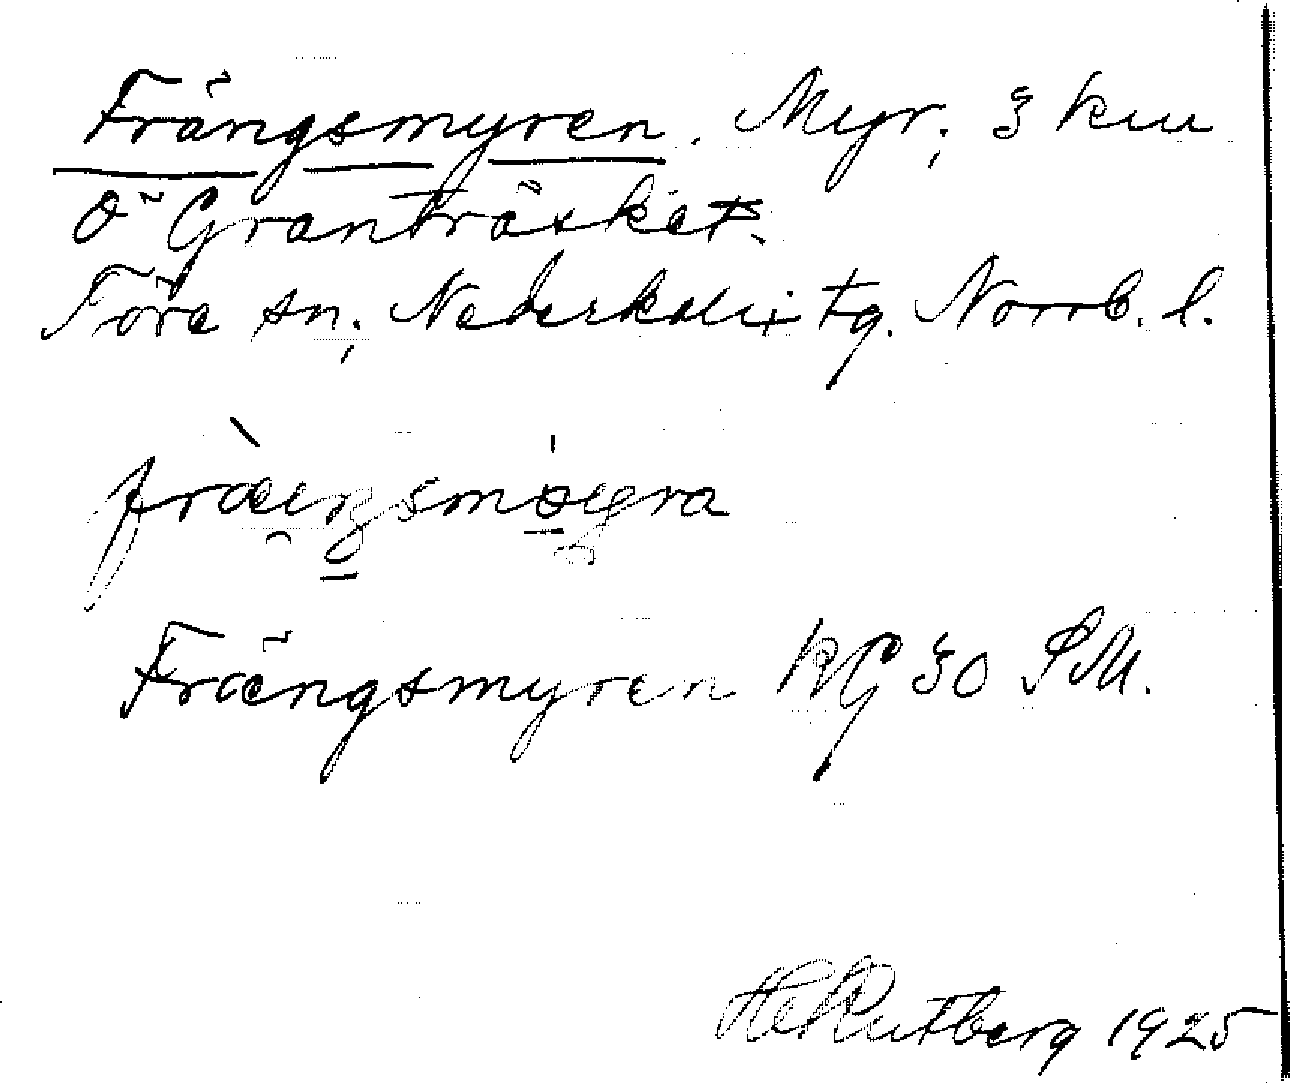 Frängsmyren. Myr; 3 km
Ö Granträsket.
Töre sn; Nederkalix tg. Norrb. l.
fràeŋsmøyra
Frängsmyren KG 30 SM.
H Rutberg 1925